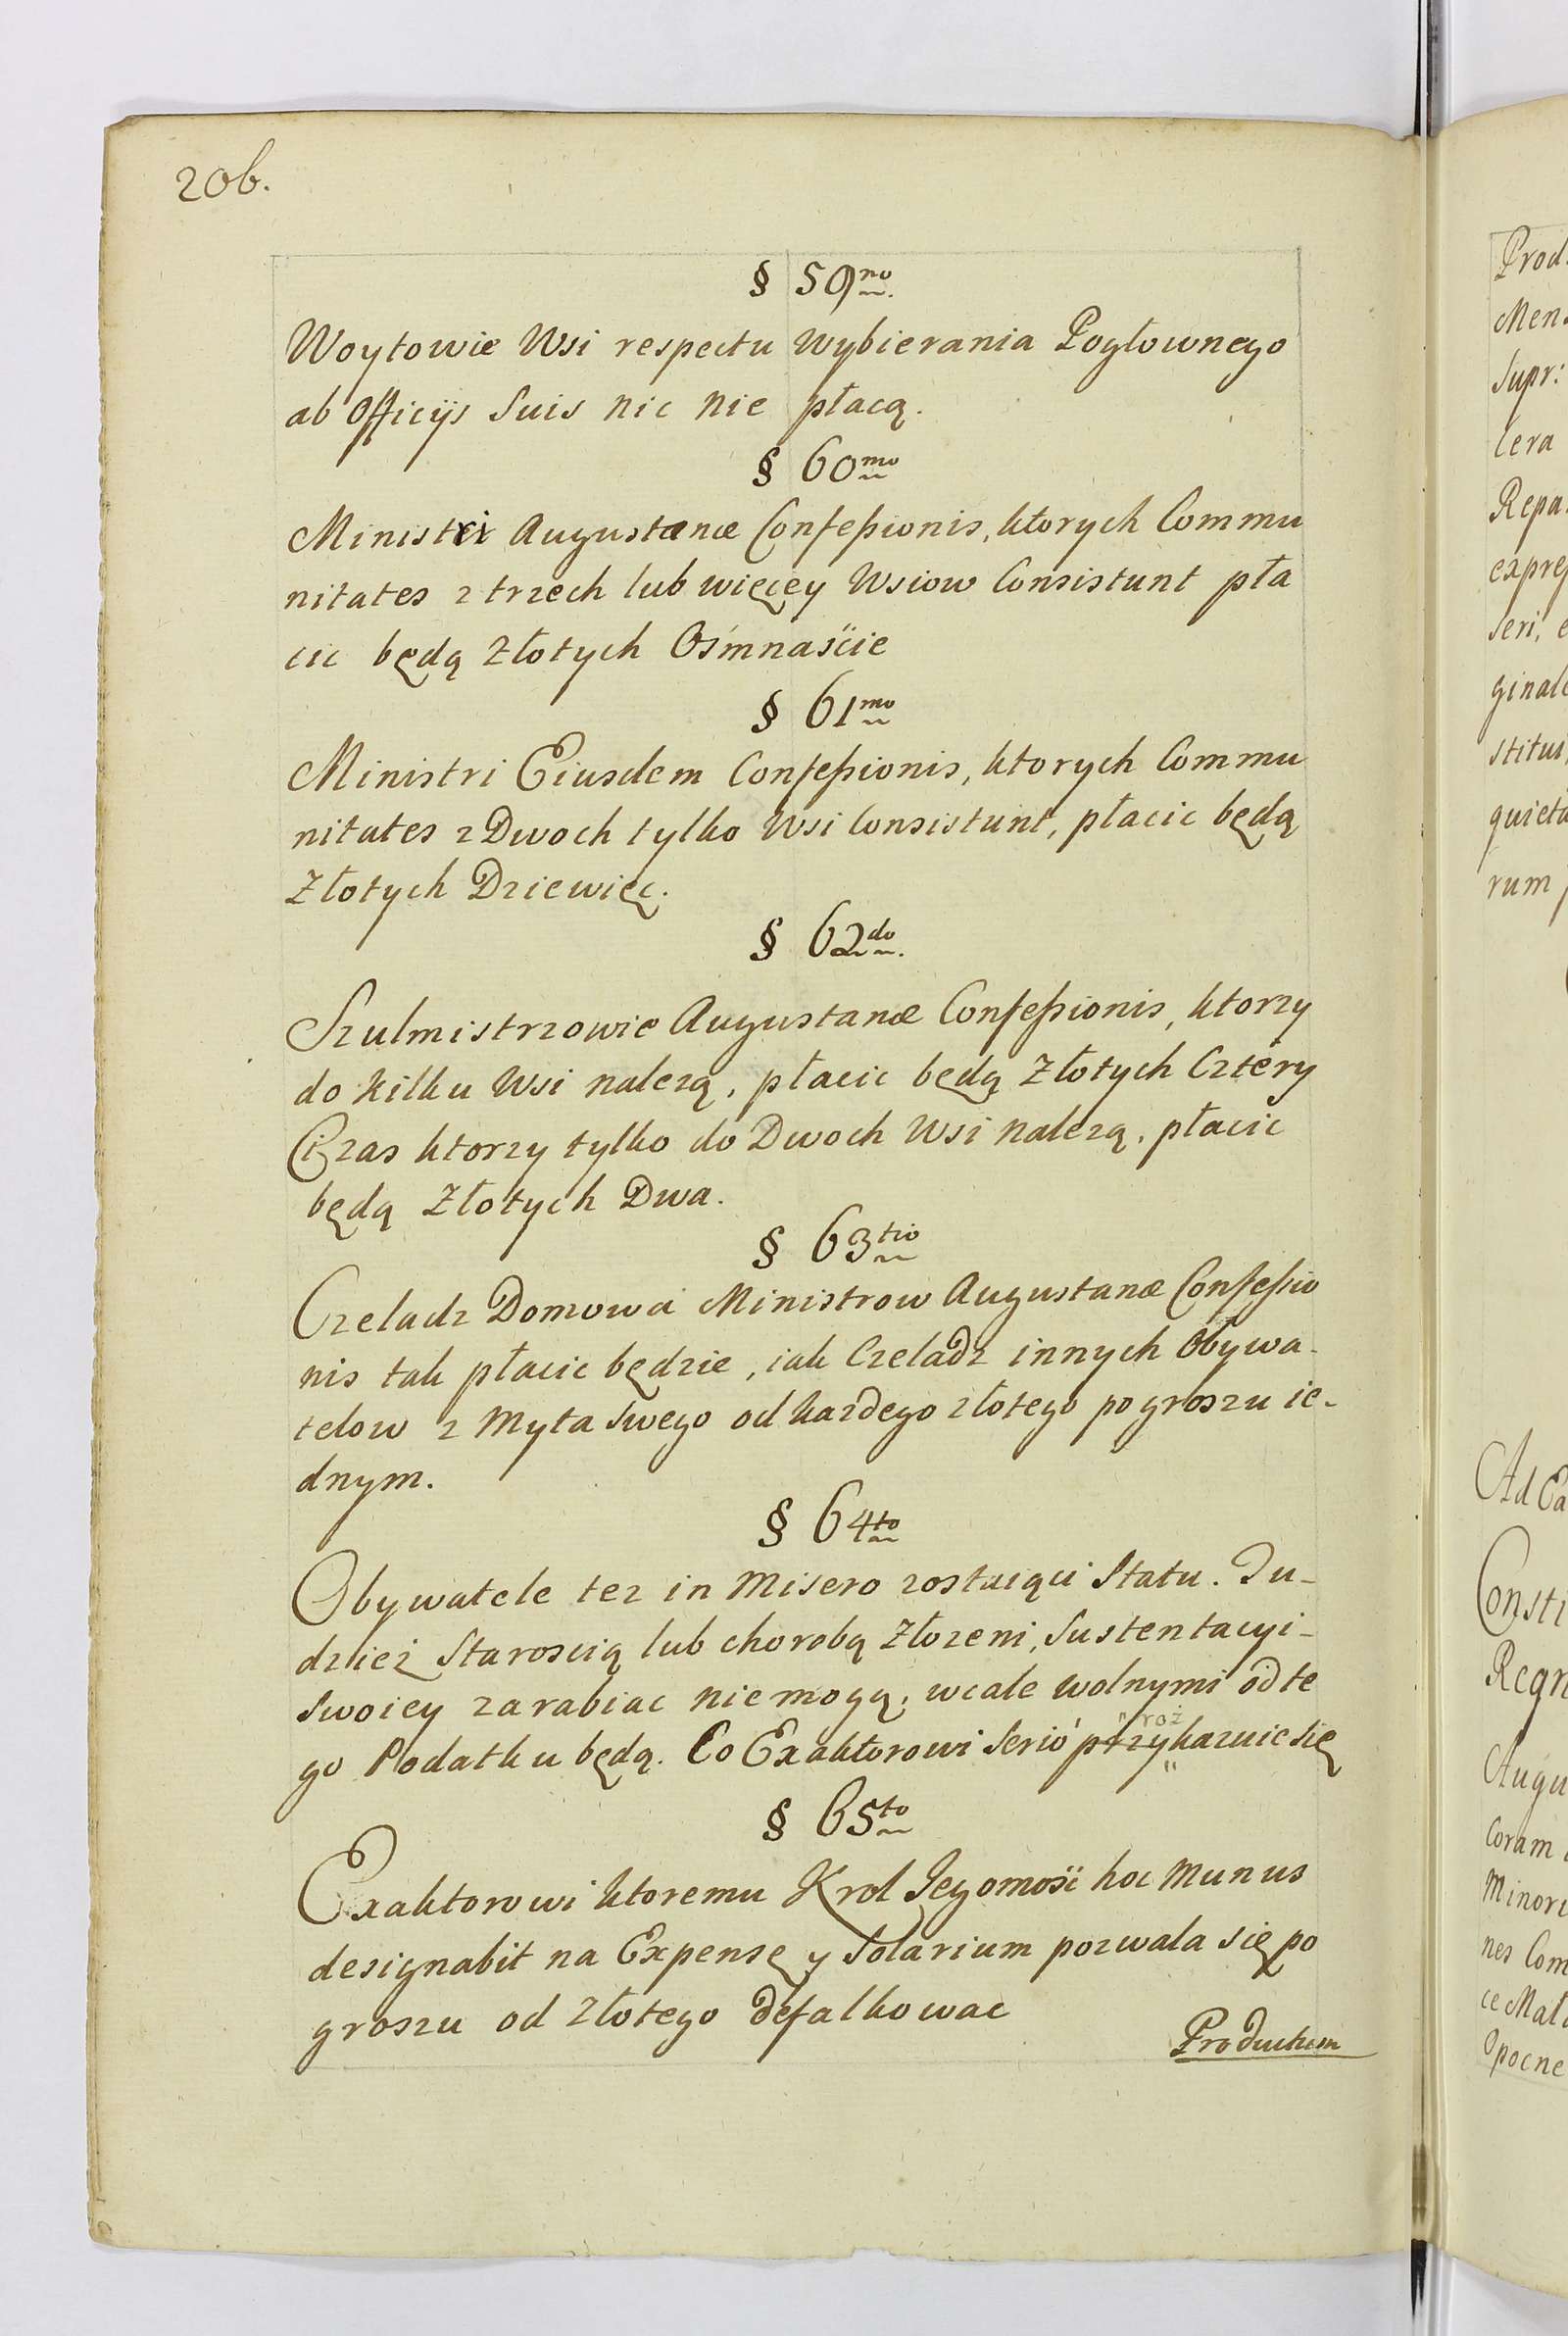 206.
§ 59no.
Woytowie Wsi respectu wybierania Pogłownego
ab Officijs Suis nic nie płacą.
§ 60mo
Ministri Augustanæ Confeßionis, ktorych Commu
nitates z trzech lub więcęy Wsiow Consistunt pła
cic będą Złotych Ośmnaście
§ 61mo
Ministri Eiusdem Confeßionis, ktorych Commu
nitates z Dwoch tylko Wsi Consistunt, płacic będą
Złotych Dziewięc.
§ 62do.
Szulmistrzowie Augustanæ Confeßionis, ktorzy
do kilku Wsi nalezą, płacic będą Złotych Cztéry
Ci zas ktorzy tylko do Dwoch Wsi nalezą, płacic
będą Złotych Dwa.
§ 63tio
Czeladz Domowa Ministrow Augustanæ Confeßio
nis tak płacic będzie, iak Czeladz innych Obywa-
telow z Myta swego od kazdego złotego po groszu ie-
dnym.
§ 64to
Obywatele tez in Misero zostaiąci Statu. Tu-
dzież Staroscią lub chorobą Złozeni, Sustentacyi-
swoiey zarabiac nie mogą, wcale wolnymi od te
go Podatku będą. Co Exaktorowi serió przykazuie się
§ 65to
Exaktorowi ktoremu Krol Jegomość hoc Munus
designabit na Expensę y Solarium pozwala się po
groszu od Złotego defalkowac
Productum
Prod.
Supr:
cera
Repa
ginale
rum
Ad Ea
Consti
Regn
Augu
Coram
Minori
nes Com
ce Mał
Opocne